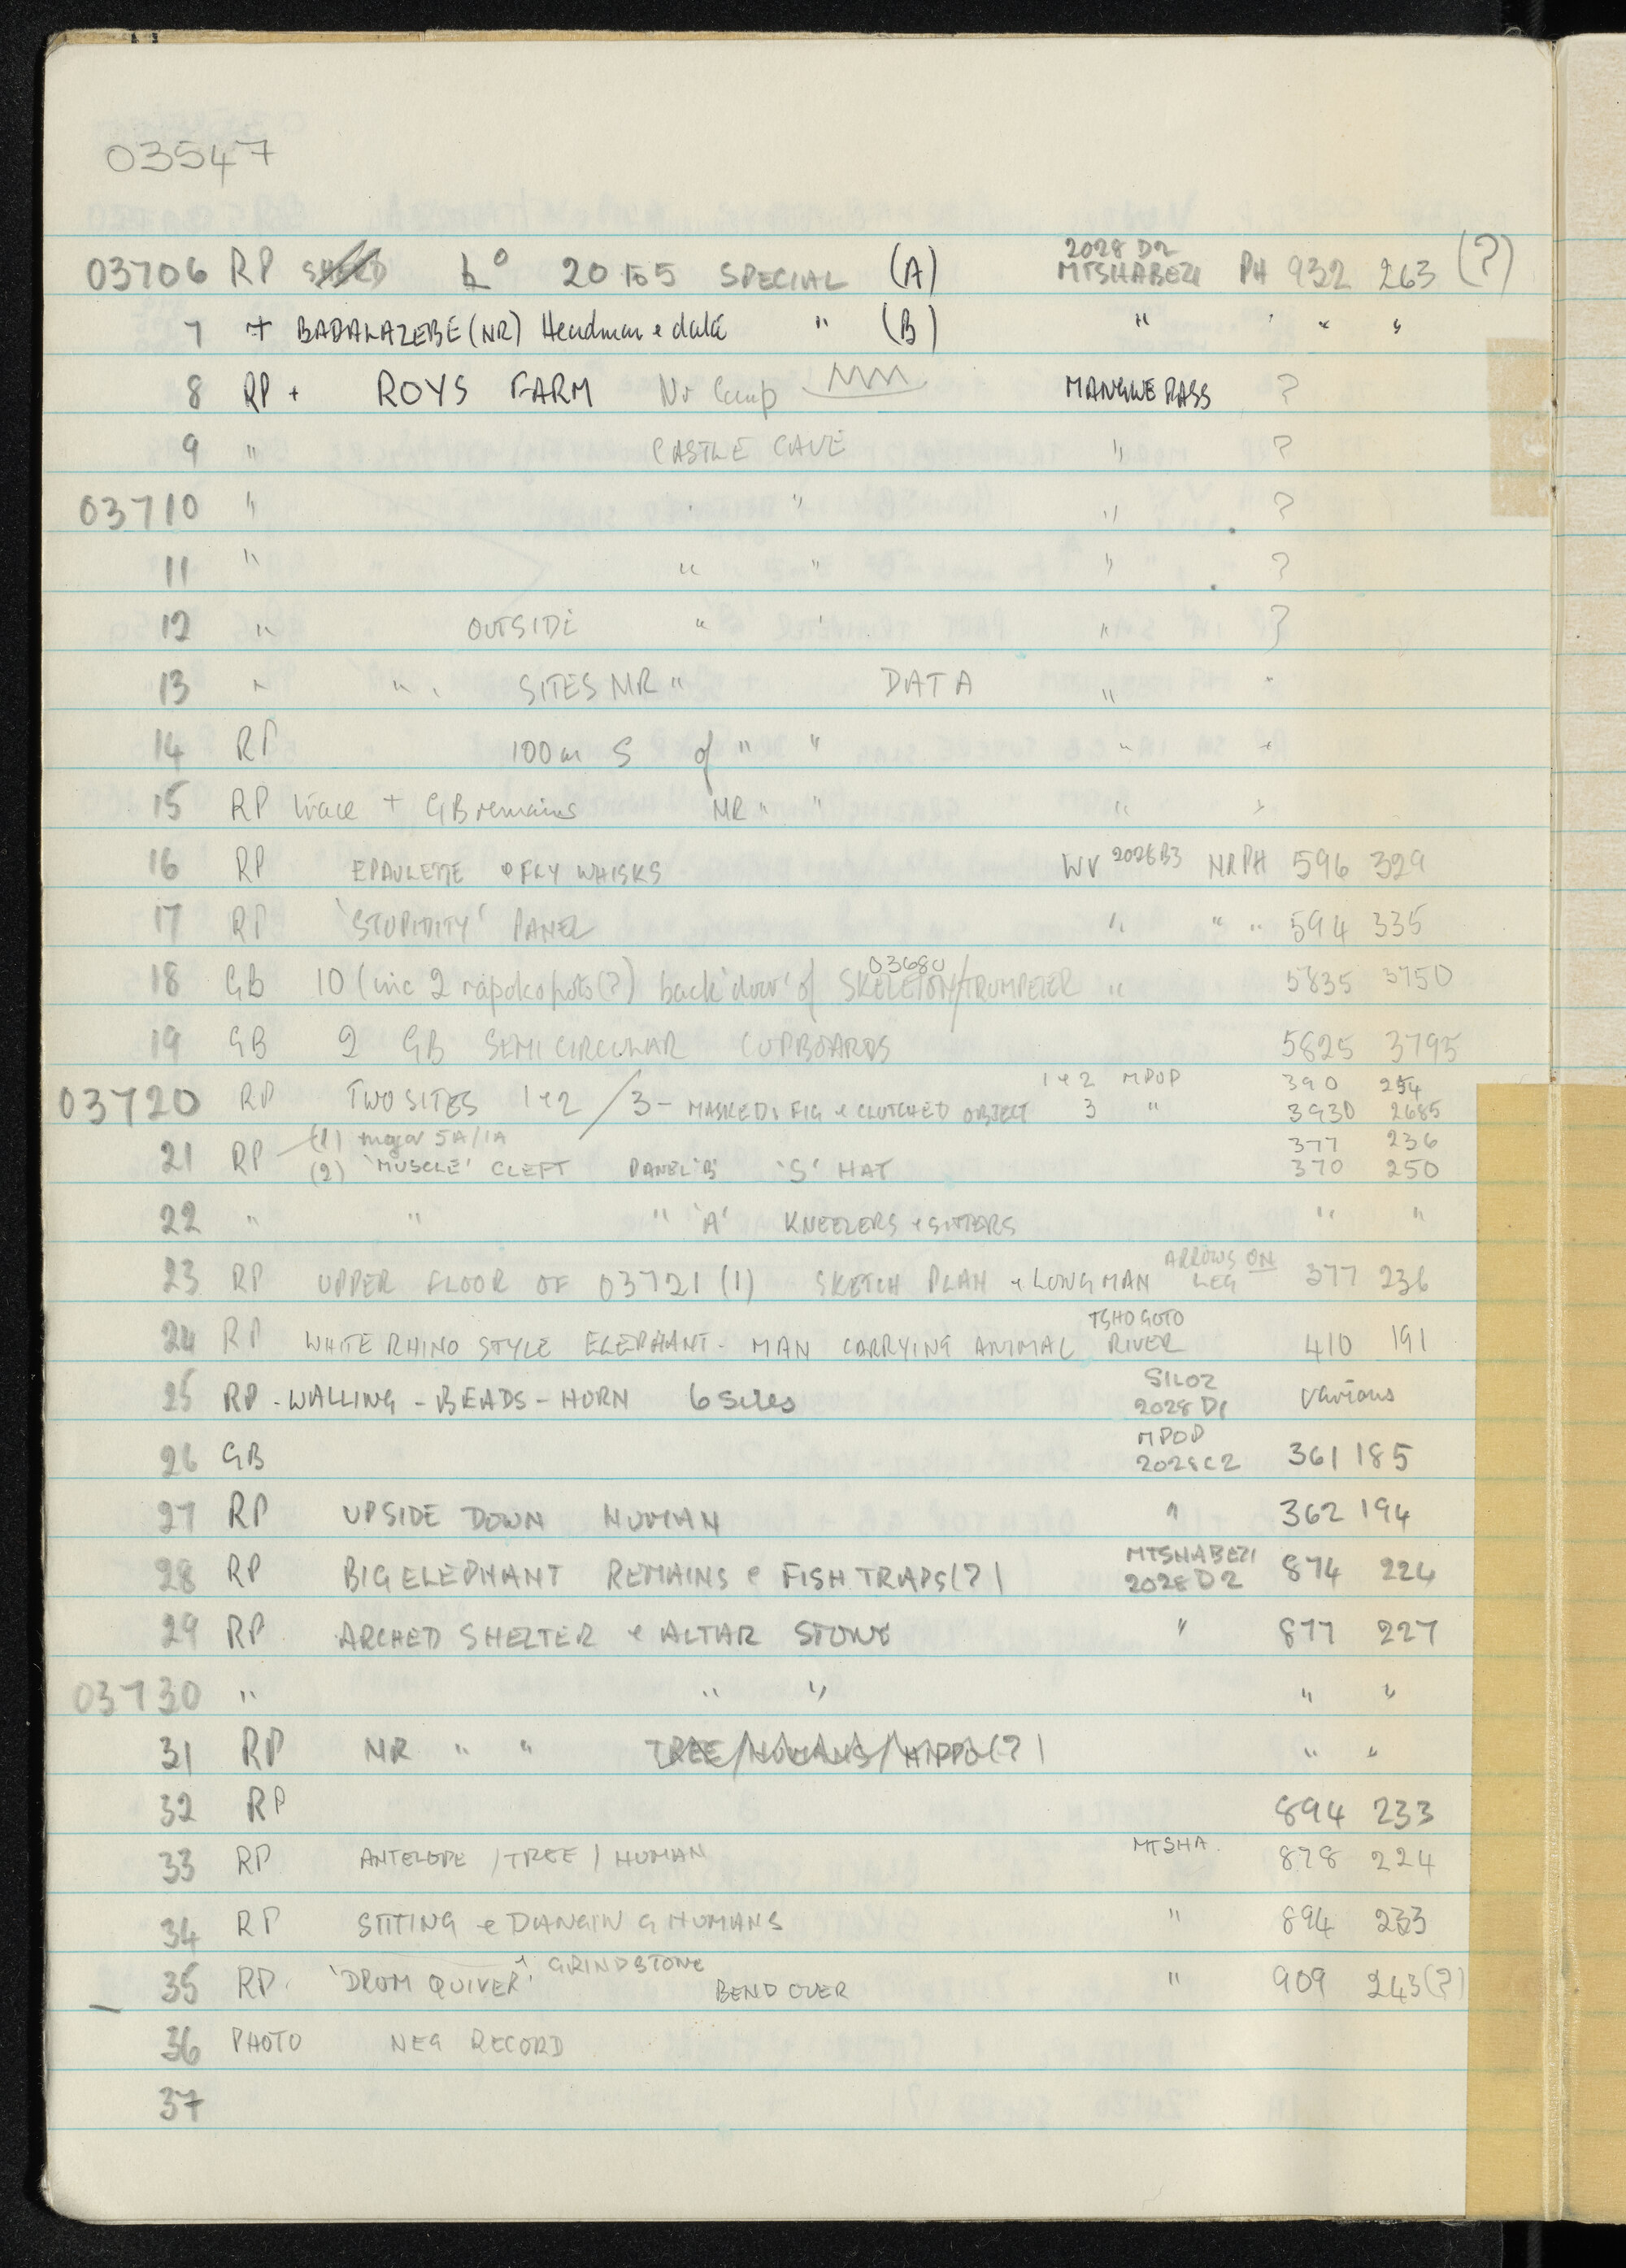 03547
03706 RP 20 to 5 SPECIAL (A) 2028 D2 MTSHABEZI PH 932 263 (?)
7 + BADALAZEBE (NR) Headman & data " (B) " " " "
8 RP + ROYS FARM Nr Camp MANGWE PASS ?
9 " CASTLE CAVE " ?
03710 " " " " ?
11 " " " " ?
12 " OUTSIDE " " " ?
13 " " " SITES NR " DATA " "
14 RP 100m S of " " " "
15 RP trace + GB remains NR " " " "
16 RP EPAULETTE & FLY WHISKS WV 2028B3 NR PH 596 329
17 RP 'STUPIDITY' PANEL " " " 594 335
18 GB 10 (inc 2 rapoko pots (?) back door' of 03680 SKELETON/TRUMPETER " 5835 3750
19 GB 2 GB SEMICIRCULAR CUPBOARDS 5825 3795
03720 RP TWO SITES 1 & 2 / 3 - MASKED FIG & CLUTCHED OBJECT 1 & 2 MPOP 390 254
3 " 3930 2685
21 RP (1) major SA/IA 377 236
(2) 'MUSCLE' CLEFT PANEL 'B' 'S' HAT 370 250
22 " " " 'A' KNEELERS & SITTERS " "
23 RP UPPER FLOOR OF 03721 (1) SKETCH PLAN & LONG MAN ARROWS ON LEG 377 236
24 RP WHITE RHINO STYLE ELEPHANT - MAN CARRYING ANIMAL TSHOGOTO RIVER 410 191
25 RP - WALLING - BEADS - HORN 6 Sites SILOZ 2028 D1 various
26 GB MPOP 2028C2 361 185
27 RP UPSIDE DOWN HUMAN " 362 194
28 RP BIG ELEPHANT REMAINS & FISH TRAPS (?) MTSHABEZI 2028 D2 874 224
29 RP ARCHED SHELTER & ALTAR STONE " 877 227
03730 " " " " "
31 RP NR " " TREE/HUMANS/HIPPO (?) " "
32 RP 894 233
33 RP ANTELOPE / TREE / HUMAN MTSHA. 878 224
34 RP SITTING & DANCING HUMANS " 894 233
35 RP. 'DRUM QUIVER' & GRINDSTONE BEND OVER " 909 243 (?)
36 PHOTO NEG RECORD
37